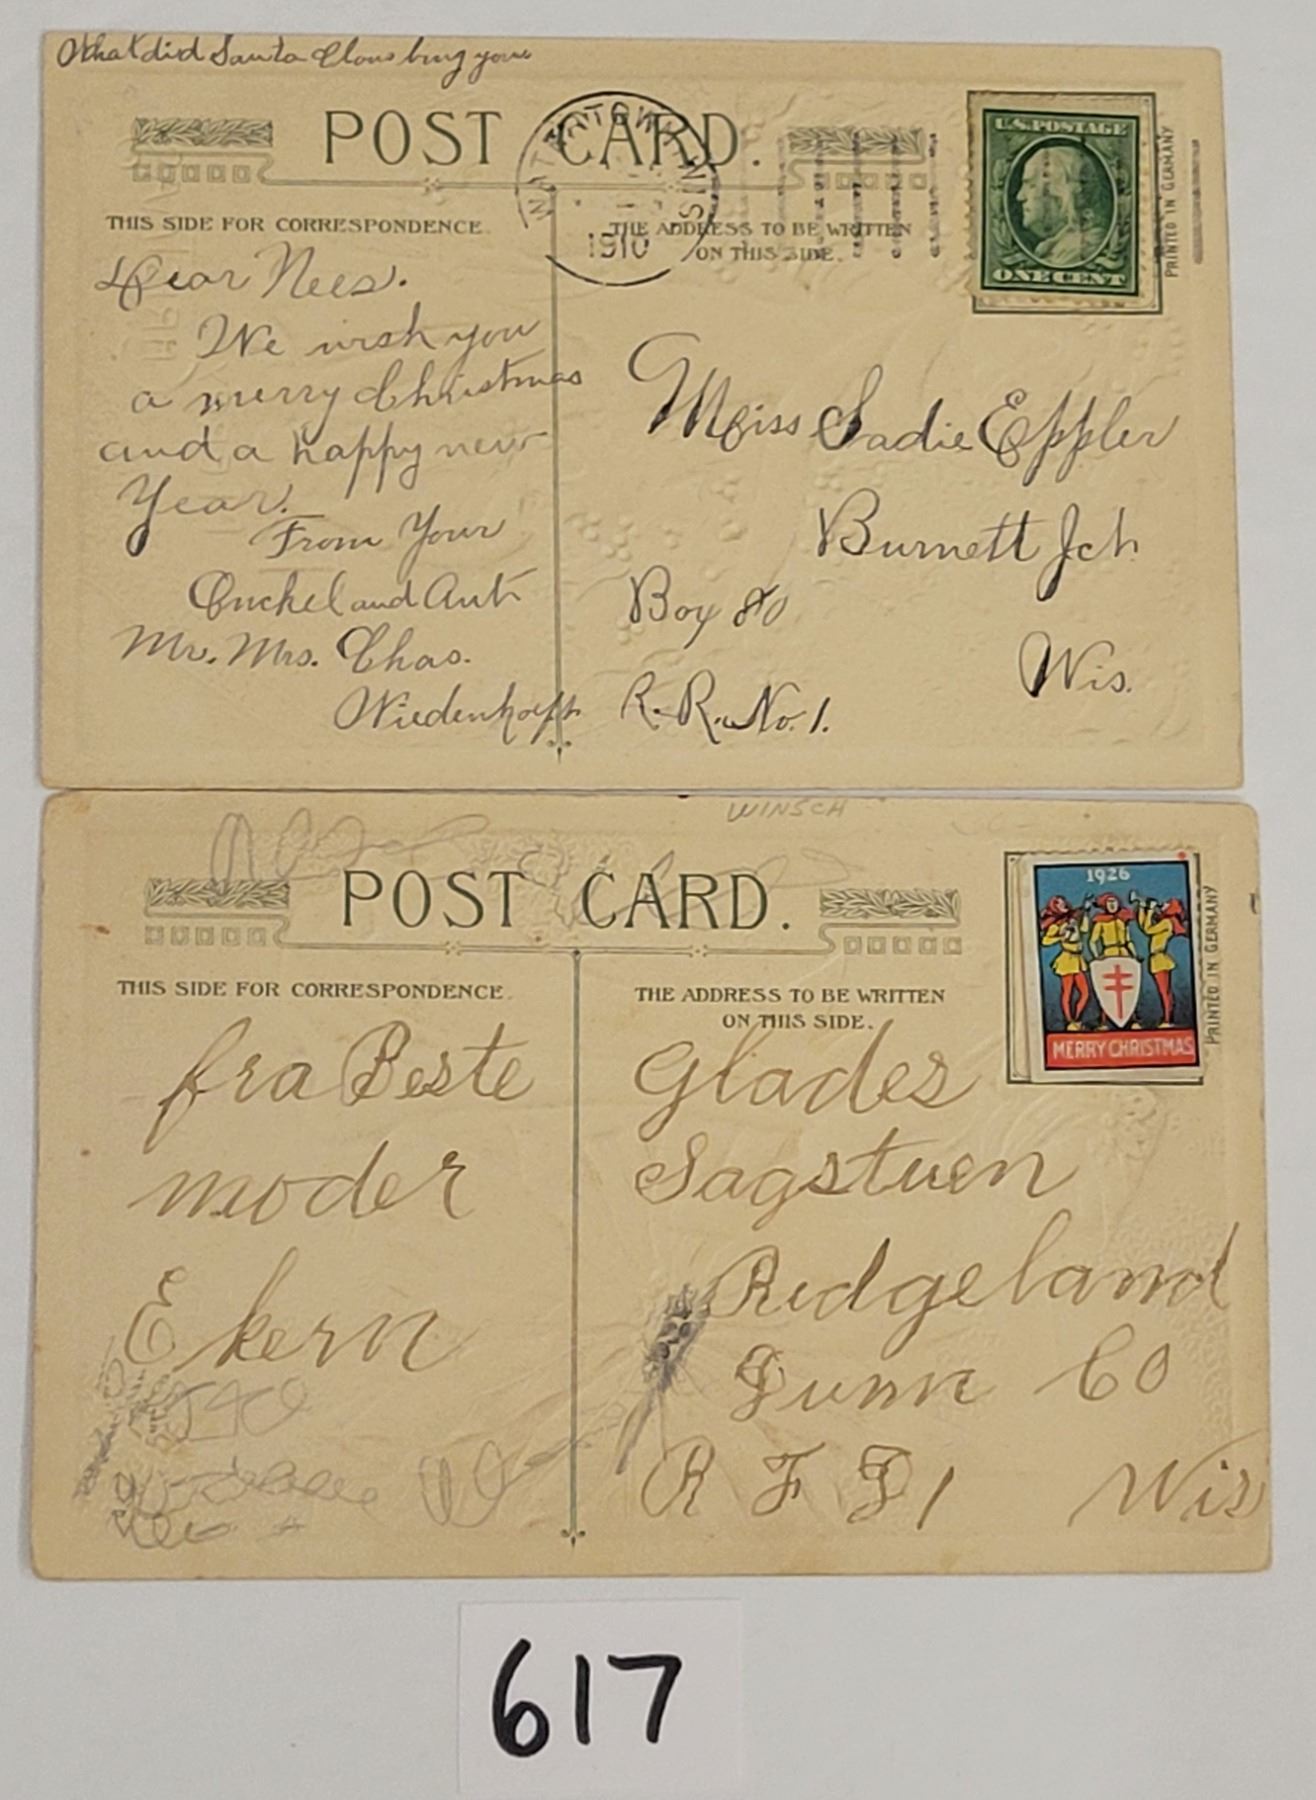 What did Santa Claus bring you
POST CARD.
WATERTOWN
WIS
1910
U.S. POSTAGE
ONE CENT
PRINTED IN GERMANY
THIS SIDE FOR CORRESPONDENCE.
THE ADDRESS TO BE WRITTEN
ON THIS SIDE.
Dear Nees.
We wish you
a merry Christmas
and a happy new
Year.
From Your
Onckel and Ant
Mr. Mrs. Chas.
Wiedenhoeft
Miss Sadie Eppler
Burnett Jct
Box 80
Wis.
R. R. No. 1.
WINSCH
POST CARD.
1926
MERRY CHRISTMAS
PRINTED IN GERMANY
THIS SIDE FOR CORRESPONDENCE.
THE ADDRESS TO BE WRITTEN
ON THIS SIDE.
fra Beste
moder
Ekern
Glades
Sagstuen
Ridgeland
Dunn Co
R F D 1 Wis
617